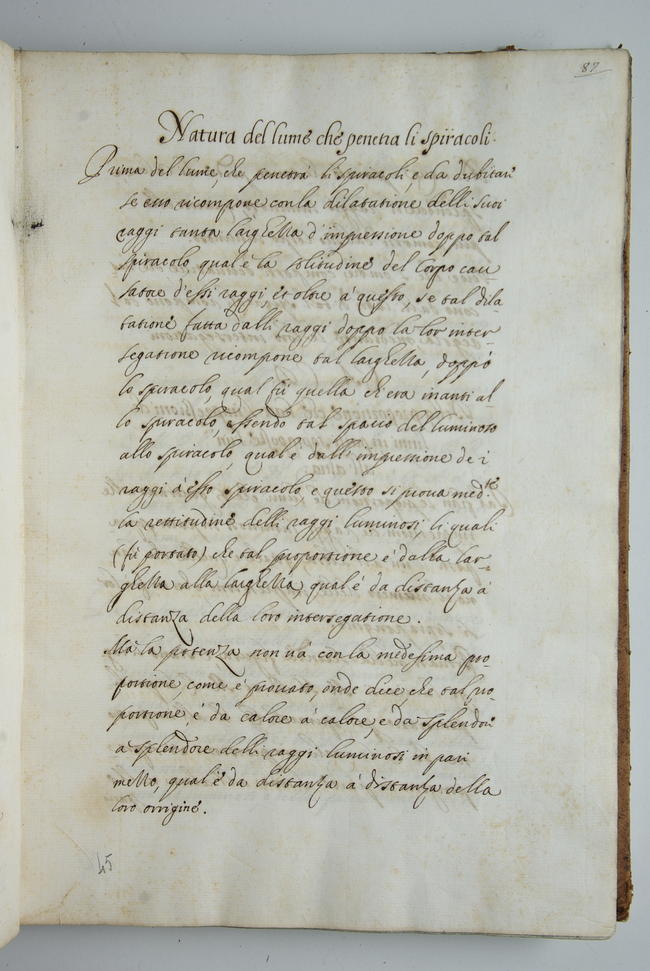 87
Natura del lume che penetra li spiracoli.
Prima del lume, che penetra li spiracoli, è da dubitare
se esso ricompone con la dilatatione delli suoi
raggi tanta larghezza d'impressione doppo tal
spiracolo, qual è la solitudine del corpo cau
satore d'essi raggi, et oltre à questo, se tal dila
tatione fatta dalli raggi doppo la lor inter
segatione ricompone tal larghezza, doppò
lo spiracolo, qual fù quella che era inanti al
lo spiracolo, essendo tal spacio del luminoso
allo spiracolo, qual è dall'impressione de i
raggi à esso spiracolo, e questo si prova med.te
la rettitudine delli raggi luminosi, li quali
(fù portato) che tal proportione è dalla lar
ghezza alla larghezza, qual è da distanza à
distanza della loro intersegatione.
Mà la potenza non và con la medesima pro
portione come è provato, onde dice, che tal pro
portione, è da calore à calore, e da splendore
a splendore delli raggi luminosi in pari
mezzo, qual è da distanza à distanza della
loro origine.
45